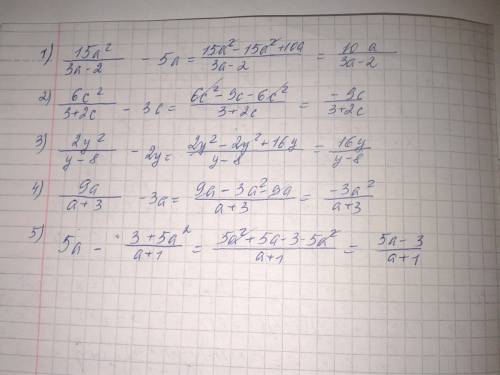 1) 15a²/(3a-2) - 5a = (15a² - 15a² + 10a)/(3a-2) = 10a/(3a-2)
2) 6c²/(3+2c) - 3c = (6c² - 9c - 6c²)/(3+2c) = -9c/(3+2c)
3) 2y²/(y-8) - 2y = (2y² - 2y² + 16y)/(y-8) = 16y/(y-8)
4) 9a/(a+3) - 3a = (9a - 3a² - 9a)/(a+3) = -3a²/(a+3)
5) 5a - (3+5a²)/(a+1) = (5a² + 5a - 3 - 5a²)/(a+1) = (5a-3)/(a+1)